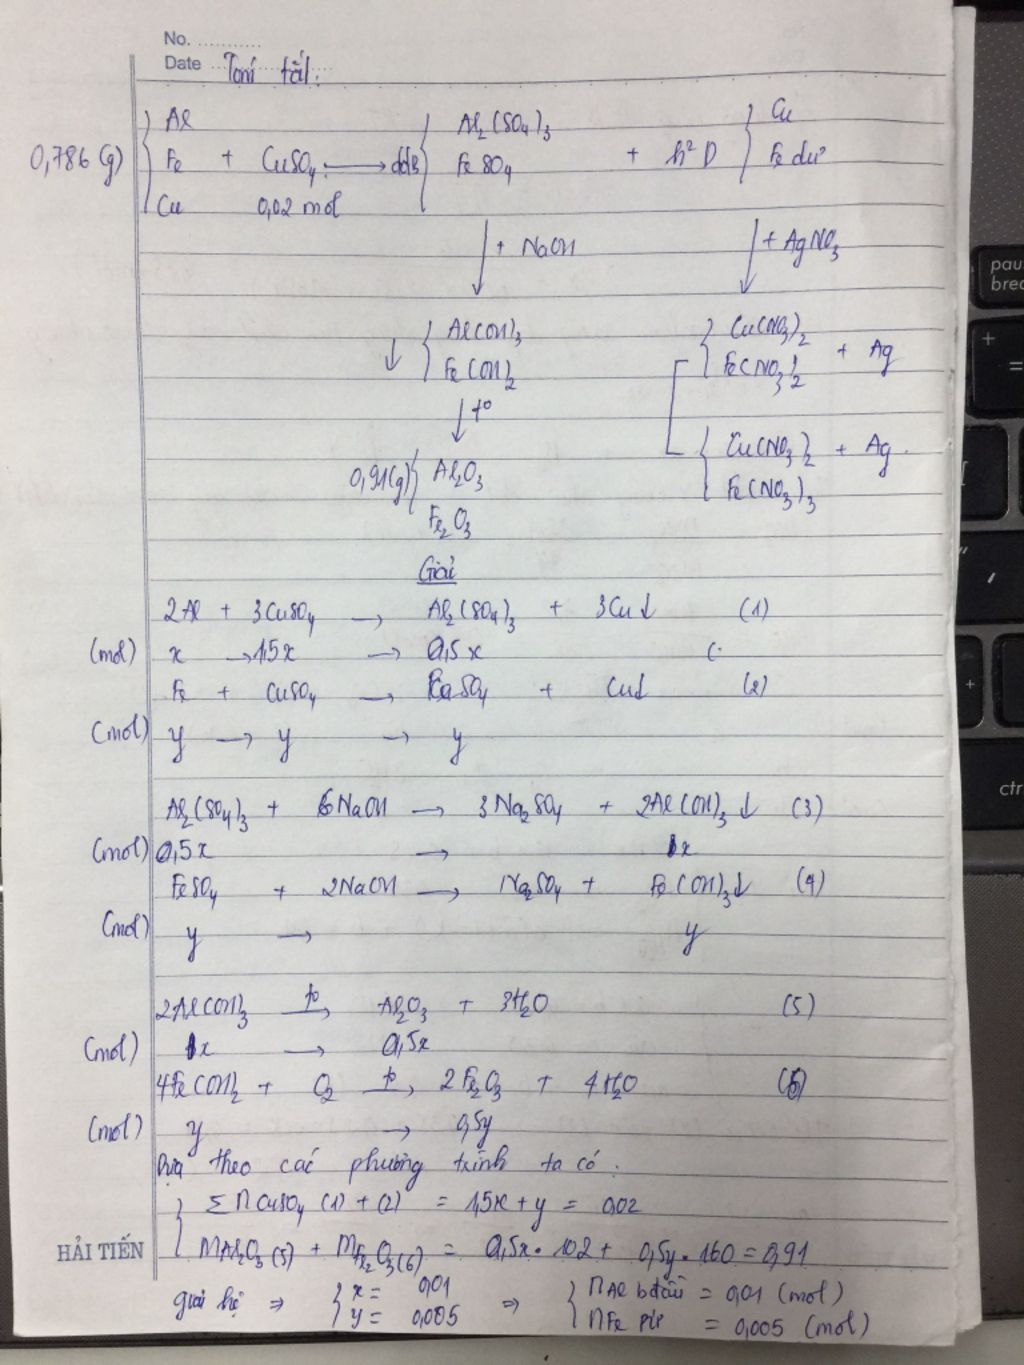 No. ............
Date Tóm tắt:
Al Al₂(SO₄)₃ Cu
0,786 (g) Fe + CuSO₄ → ddB FeSO₄ + h² D Fe dư
Cu 0,02 mol
+ NaOH + AgNO₃
Al(OH)₃ Cu(NO₃)₂
↓ Fe(OH)₂ Fe(NO₃)₂ + Ag
↓ t° Cu(NO₃)₂ + Ag
0,91(g) Al₂O₃ Fe(NO₃)₃
Fe₂O₃
Giải
2Al + 3CuSO₄ → Al₂(SO₄)₃ + 3Cu↓ (1)
(mol) x → 1,5x → 0,5x (
Fe + CuSO₄ → FeSO₄ + Cu↓ (2)
(mol) y → y → y
Al₂(SO₄)₃ + 6NaOH → 3Na₂SO₄ + 2Al(OH)₃↓ (3)
(mol) 0,5x → 1x
FeSO₄ + 2NaOH → Na₂SO₄ + Fe(OH)₃↓ (4)
(mol) y → y
2Al(OH)₃ t°→ Al₂O₃ + 3H₂O (5)
(mol) 1x → 0,5x
4Fe(OH)₂ + O₂ t°→ 2Fe₂O₃ + 4H₂O (6)
(mol) y → 0,5y
Dựa theo các phương trình ta có:
Σ nCuSO₄ (1) + (2) = 1,5x + y = 0,02
HẢI TIẾN mAl₂O₃(5) + mFe₂O₃(6) = 0,5x.102 + 0,5y.160 = 0,91
giải hệ ⇒ x = 0,01 ⇒ nAl bđầu = 0,01 (mol)
y = 0,005 nFe pư = 0,005 (mol)
pau
brea
+
=
ctr